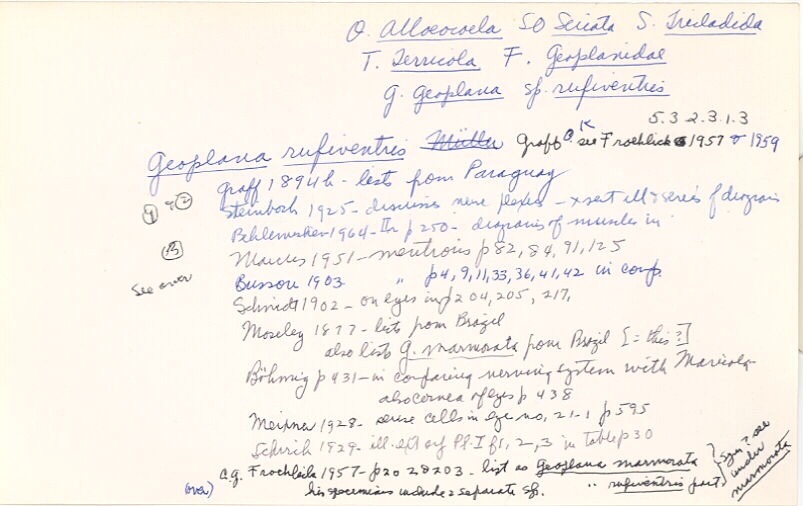 O. Alloeocoela SO Seriata S. Tricladida
T. Terricola F. Geoplanidae
G. Geoplana sp. rufiventris
5.3.2.3.1.3
Geoplana rufiventris Müller Graff O.K see Froehlich 1957 & 1959
Graff 1894b - lists from Paraguay
④ & ② Steinbock 1925 - discusses nerve plexus - x sect ill & series of diagrams
Beklemishev 1964 - II p 250 - diagrams of muscles in
⑬ Marcus 1951 - mentions p 82, 84, 91, 125
See over
Busson 1903 " p 4, 9, 11, 33, 36, 41, 42 in comp.
Schmidt 1902 - on eyes in p 204, 205, 217,
Moseley 1877 - lists from Brazil
also lists G. marmorata from Brazil [= this?]
Böhmig p 431 - in comparing nervous system with Maricola
also cornea of eyes p 438
Meixner 1928 - sense cells in eye no. 21-1 p 595
Schirch 1929 - ill. ext of Pl. I f 1, 2, 3 in table p 30
C.G. Froehlich 1957 - p 20 28 203 - list as Geoplana marmorata
his specimens include 2 separate sp. " rufiventris part.
Syn? see under marmorata
(over)